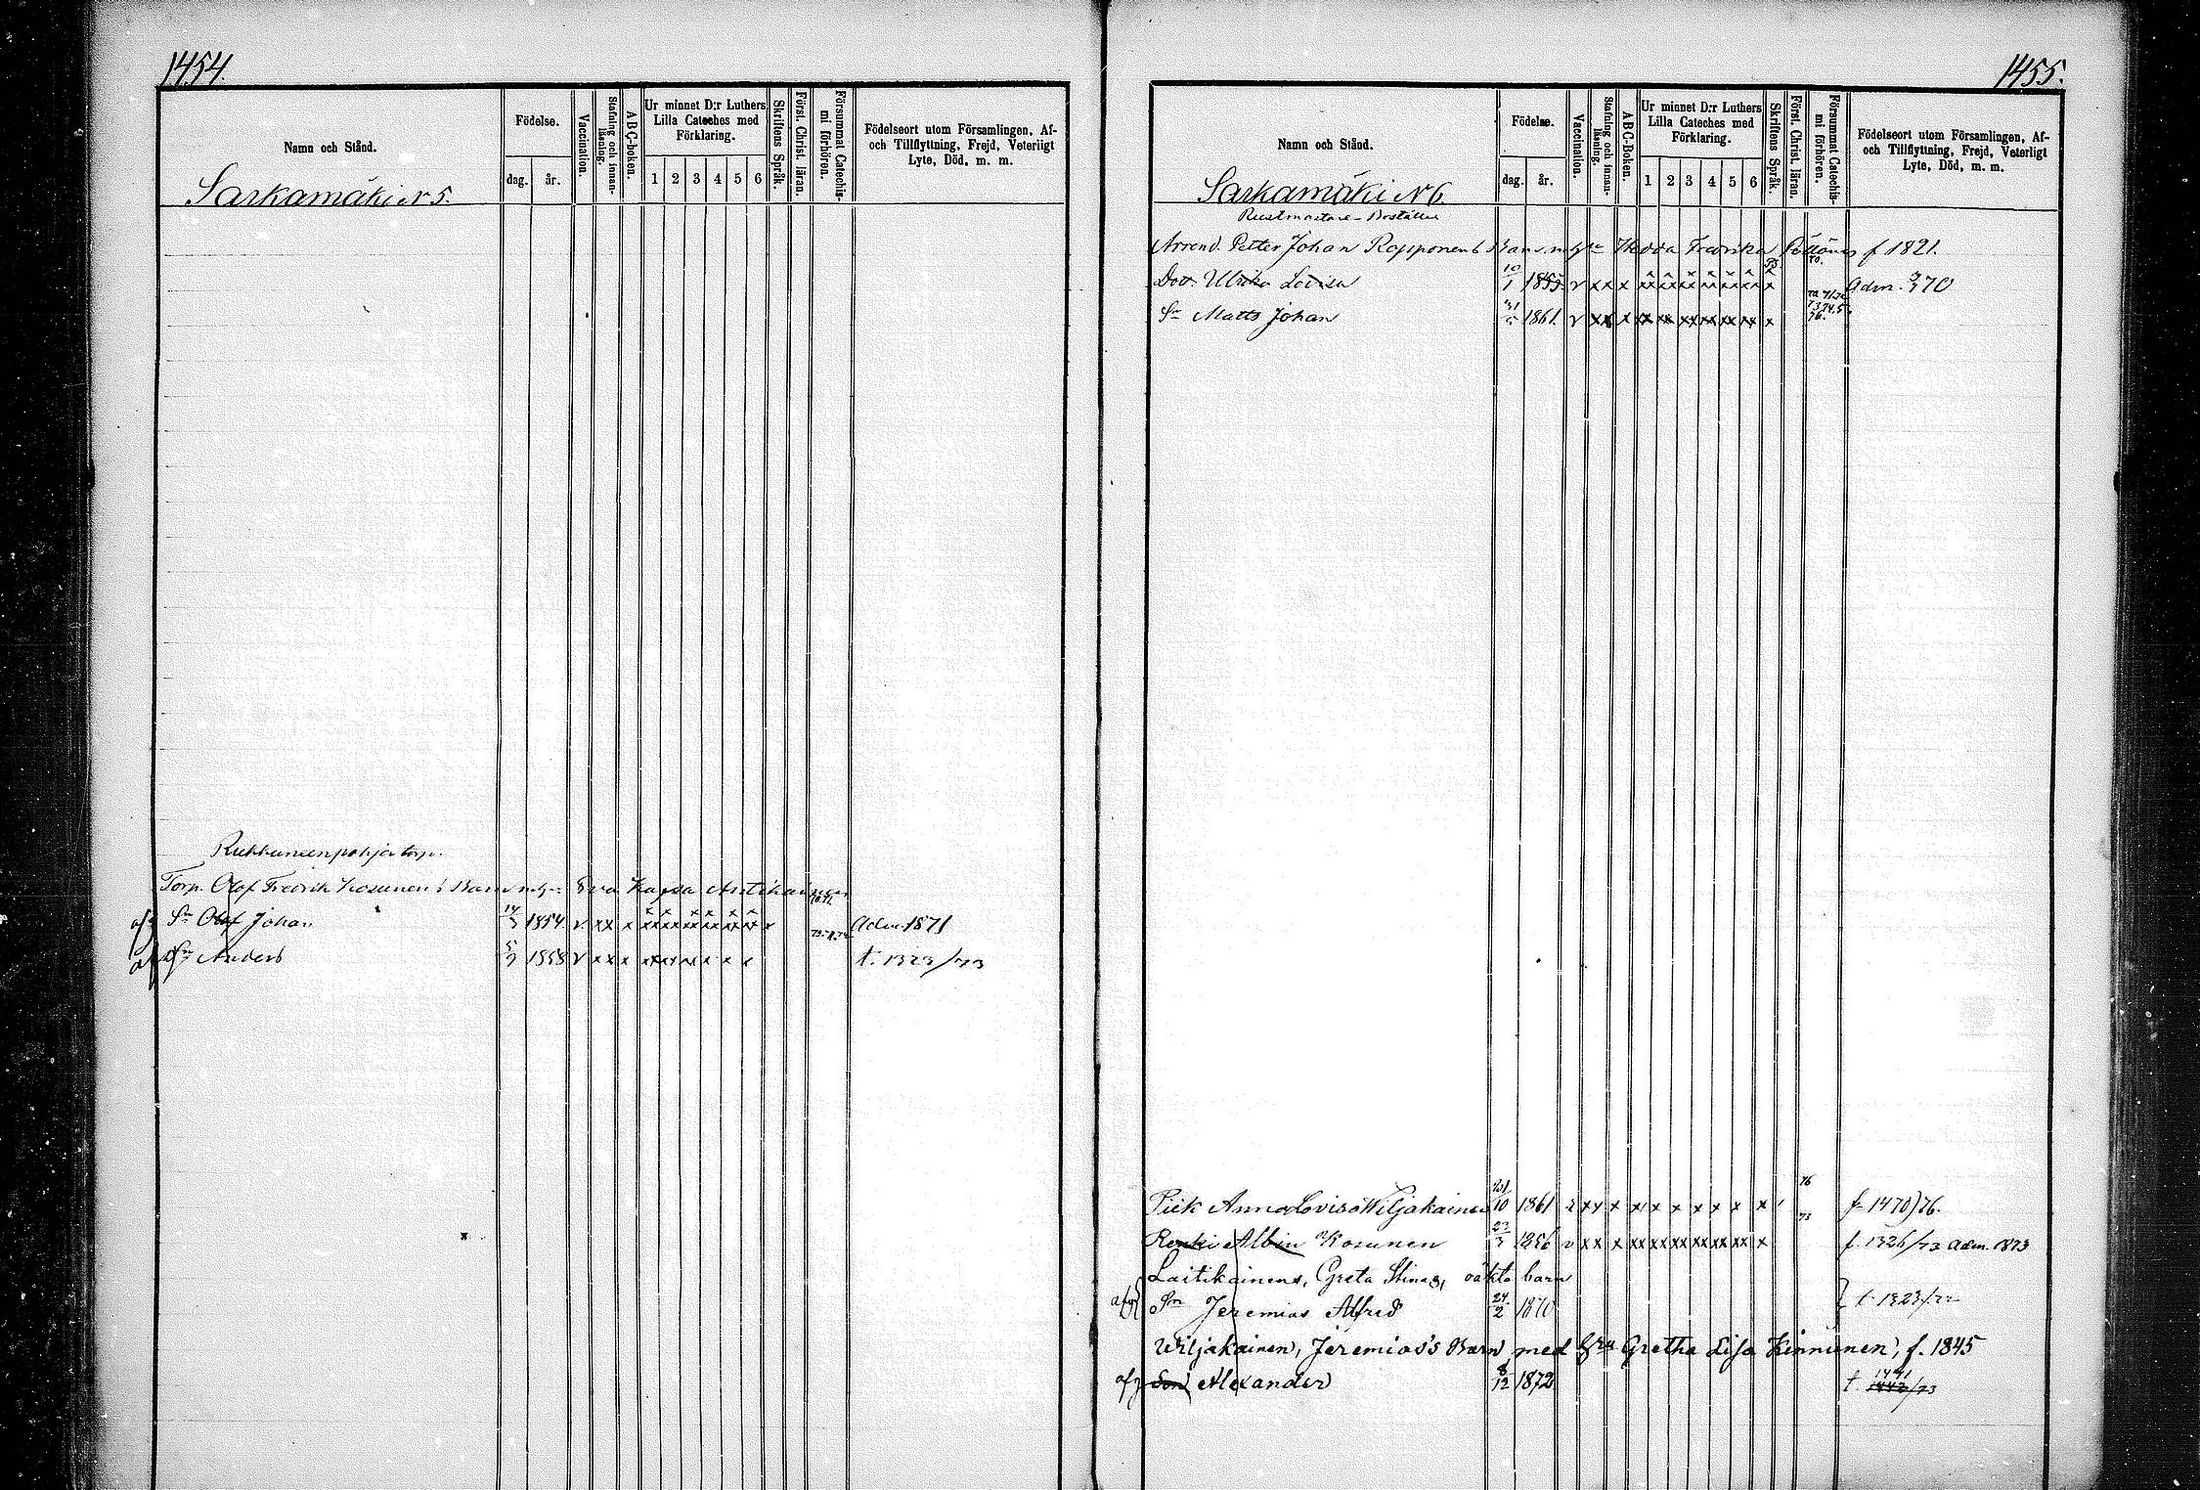 1454.
Namn och Stånd.
Födelse.
dag. år.
Vaccination.
Stafning och innanläsning.
A B C-boken.
Ur minnet D:r Luthers Lilla Cateches med Förklaring.
1 2 3 4 5 6
Skriftens Språk.
Först. Christ. läran.
Försummat Catechismi förhören.
Födelseort utom Församlingen, Af- och Tillflyttning, Frejd, Veterligt Lyte, Död, m. m.
Sarkamäki N 5.
Torp. Olof Fredrik Kosunens Barn m. Eva Kajsa
afg Sn Olof Johan 14/3 1854 v xx x xx xx xx xx xx xx x Adm. 1871
afg Sn Anders 5/9 1858 v xx x t. 1323/73
1455.
Namn och Stånd.
Födelse.
dag. år.
Vaccination.
Stafning och innanläsning.
A B C-Boken.
Ur minnet D:r Luthers Lilla Cateches med Förklaring.
1 2 3 4 5 6
Skriftens Språk.
Först. Christ. läran.
Försummat Catechismi förhören.
Födelseort utom Församlingen, Af- och Tillflyttning, Frejd, Veterligt Lyte, Död, m. m.
Sarkamäki N 6.
Rustmästare-Boställe
Arrend. Petter Johan Ropponens Barn m. Hedda Fredrika f 1821.
Dotr Ulrika Lovisa 10/1 1855 v xx x xx xx xx xx xx xx x Adm. 370
Sn Matts Johan 31/5 1861 v xx x xx xx xx xx xx xx x
Piik Anna Lovisa Wiljakainen 21/10 1861 v xx x x x x x x x x 76 f. 1470/76.
Renki Albin Kosunen 23/3 1856 v xx x xx xx xx xx xx xx x 73 f. 1326/73 adm. 1873
Laitikainens, Greta Stinas, oäkta barn
afg Sn Jeremias Alfred 24/2 1870 t. 1323/72
Wiljakainen, Jeremias's Barn med Gretha Lisa Kinnunen, f. 1845
afg Son Alexander 8/12 1872 t. 1441/73